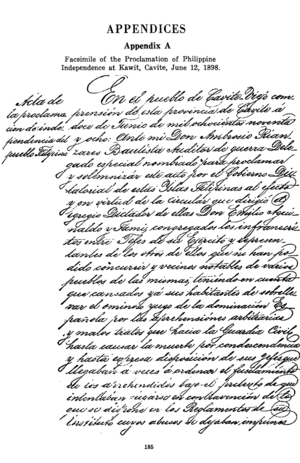 APPENDICES
Appendix A
Facsimile of the Proclamation of Philippine
Independence at Kawit, Cavite, June 12, 1898.
Acta de
la proclama
ción de inde
pendencia del
pueblo Filipino
En el pueblo de Cavite Viejo com-
prension de esta provincia de Cavite á
doce de Junio de mil ochocientos noventa
y ocho: Ante mi Don Ambrosio Rian-
zares Bautista Auditor de guerra Dele
gado especial nombrado para proclamar
y solemnizar este acto por el Gobierno Dic
tatorial de estas Yslas Filipinas al efecto
y en virtud de la circular que dirigió el
egregio Dictador de ellas Don Emilio Agui-
naldo y Famy, congregados los infrascri
tos entre Jefes de su Ejercito y represen-
tantes de los otros de ellos que no han po-
dido concurrir y vecinos notables de varios
pueblos de las mismas, teniendo en cuenta
que cansados ya sus habitantes de sobrelle
var el ominoso yugo de la dominacion Es
pañola por las aprehensiones arbitrarias
y malos tratos que hacia la Guardia Civil
hasta causar la muerte por condescendencia
y hasta expresa disposicion de sus gefes que
llegaban á veces á ordenar el fusilamiento
de los aprehendidos bajo el pretexto de que
intentaban en contravencion de lo
que se dispone en los Reglamentos de su
instituto cuyos abusos se dejaban impunes
185